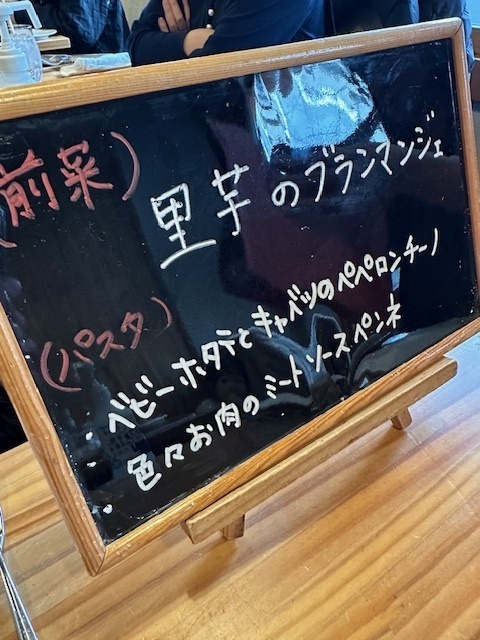 (前菜)
里芋のブランマンジェ
(パスタ)
・ベビーホタテとキャベツのペペロンチーノ
・色々お肉のミートソースペンネ